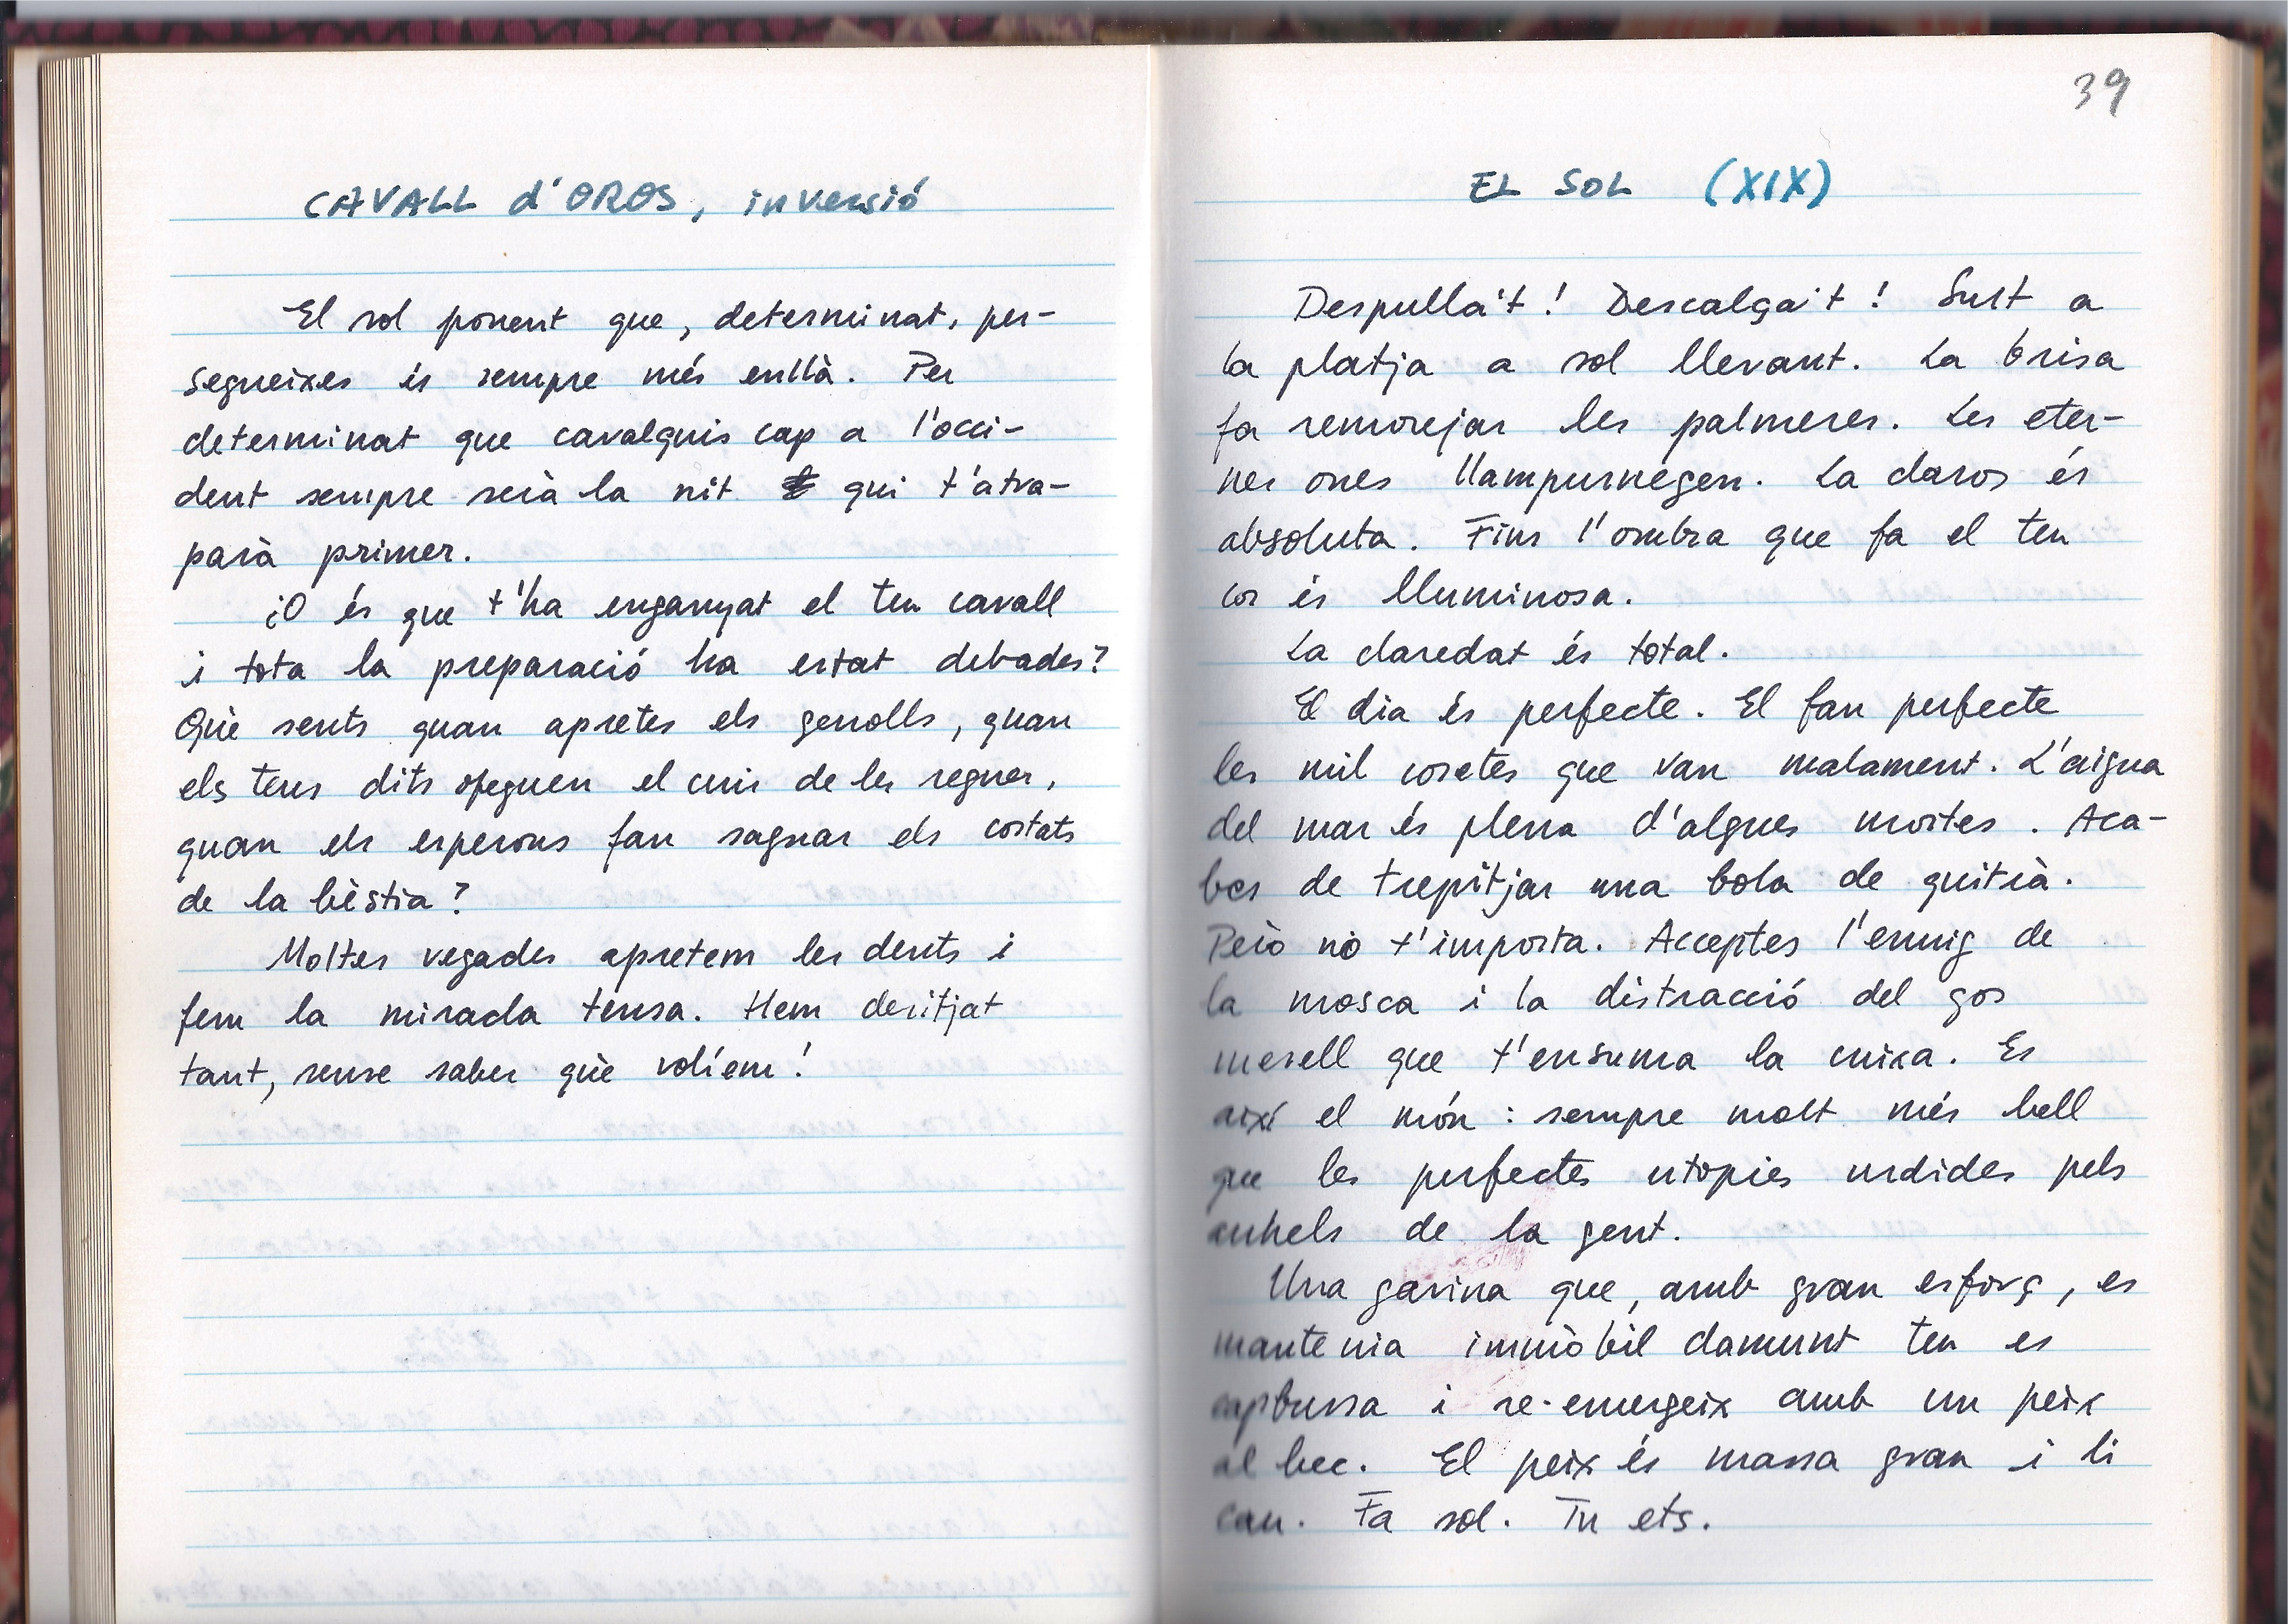 CAVALL d'OROS, inversió
El sol ponent que, determinat, per-
segueixes és sempre més enllà. Per
determinat que cavalquis cap a l'occi-
dent sempre serà la nit qui t'atra-
parà primer.
¿O és que t'ha enganyat el teu cavall
i tota la preparació ha estat debades?
Què sents quan apretes els genolls, quan
els teus dits ofeguen el cuir de les regnes,
quan els esperons fan sagnar els costats
de la bèstia?
Moltes vegades apretem les dents i
fem la mirada tensa. Hem desitjat
tant, sense saber què volíem!
39
EL SOL (XIX)
Despulla't! Descalça't! Surt a
la platja a sol llevant. La brisa
fa remorejar les palmeres. Les eter-
nes ones llampurnegen. La claror és
absoluta. Fins l'ombra que fa el teu
cos és lluminosa.
La claredat és total.
El dia és perfecte. El fan perfecte
les mil cosetes que van malament. L'aigua
del mar és plena d'algues mortes. Aca-
bes de trepitjar una bola de quitrà.
Però no t'importa. Acceptes l'enuig de
la mosca i la distracció del gos
mesell que t'ensuma la cuixa. Es
així el món: sempre molt més bell
que les perfectes utopies urdides pels
anhels de la gent.
Una gavina que, amb gran esforç, es
mantenia immòbil damunt teu es
capbussa i re-emergeix amb un peix
al bec. El peix és massa gran i li
cau. Fa sol. Tu ets.